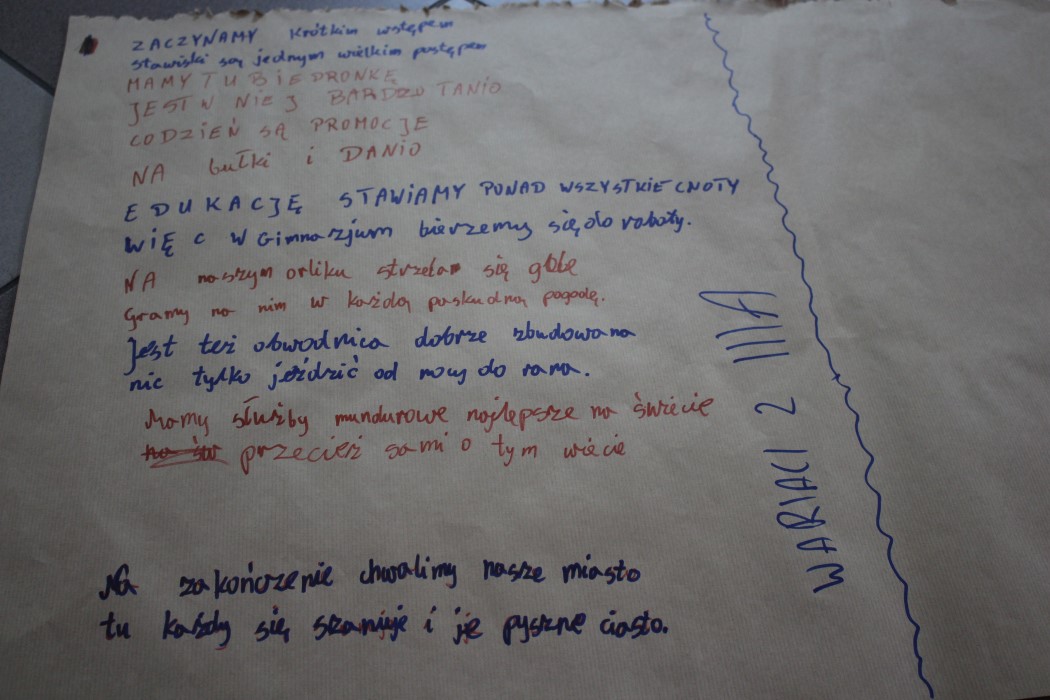 ZACZYNAMY Krótkim wstępem
stawiski są jednym wielkim postępem
MAMY TU BIEDRONKĘ
JEST W NIEJ BARDZO TANIO
CODZIEŃ SĄ PROMOCJE
NA bułki i DANIO
EDUKACJĘ STAWIAMY PONAD WSZYSTKIE CNOTY
WIĘC W Gimnazjum bierzemy się do roboty.
NA naszym orliku strzela się golę
Gramy na nim w każdą paskudną pogodę.
Jest też obwodnica dobrze zbudowana
nic tylko jeździć od nocy do rana.
Mamy służby mundurowe najlepsze na świecie
na św przecież sami o tym wiecie
Na zakończenie chwalimy nasze miasto
tu każdy się szanuje i je pyszne ciasto.
WARIACI 2 IIIA